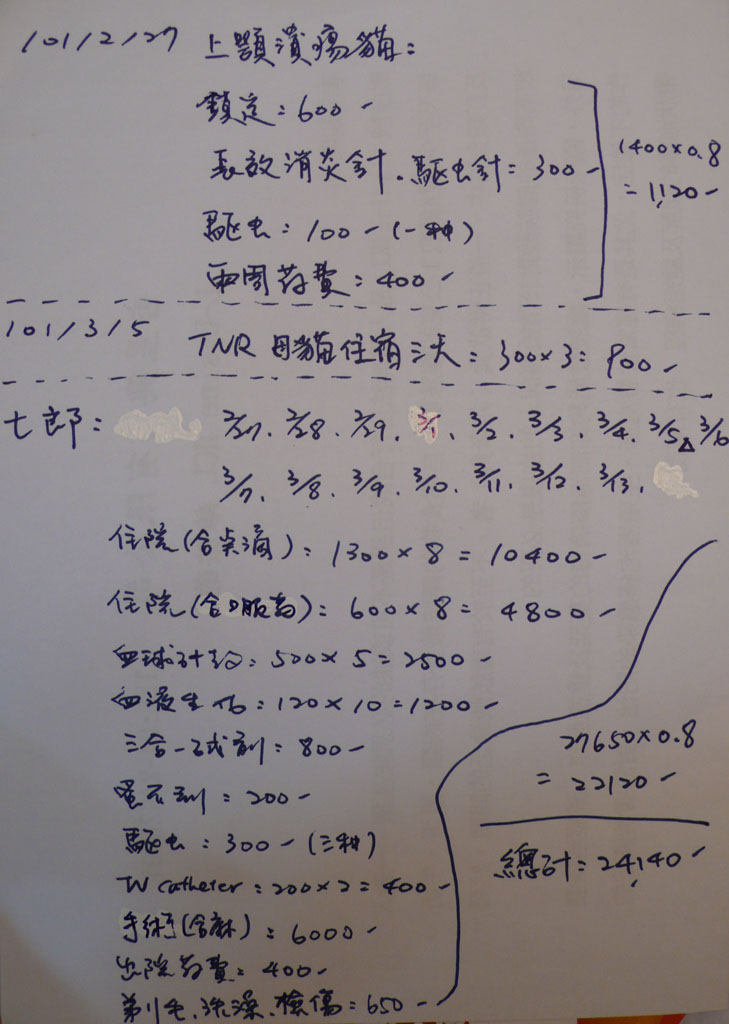 101/2/27 上顎潰瘍貓：
鎮定：600-
長效消炎針、驅虫針=300-
驅虫：100-(一种)
兩周葯費：400-
1400×0.8
=1,120-
101/3/5 TNR 母貓住宿三天：300×3=900-
七郎： 2/27、2/28、2/29、3/1、3/2、3/3、3/4、3/5△3/6
3/7、3/8、3/9、3/10、3/11、3/12、3/13、
住院(含点滴)：1300×8=10400-
住院(含口服葯)：600×8=4800-
血球計数：500×5=2500-
血液生化：120×10=1200-
三合一試剂=800-
驅虫：300-(三种)
IV catheter：200×2=400-
手術(含麻)：6000-
出院葯費：400-
剃毛、洗澡、檢傷=650-
27650×0.8
=22120-
總計=24,140-